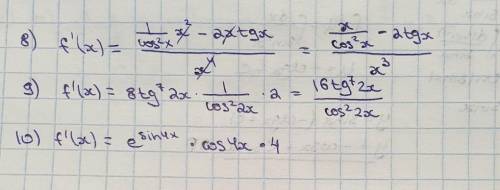 8) f'(x) = (1/cos²x · x² − 2x tg x) / x⁴ = (x/cos²x − 2tg x) / x³
9) f'(x) = 8tg⁷2x · 1/cos²2x · 2 = 16tg⁷2x / cos²2x
10) f'(x) = e^sin4x · cos4x · 4